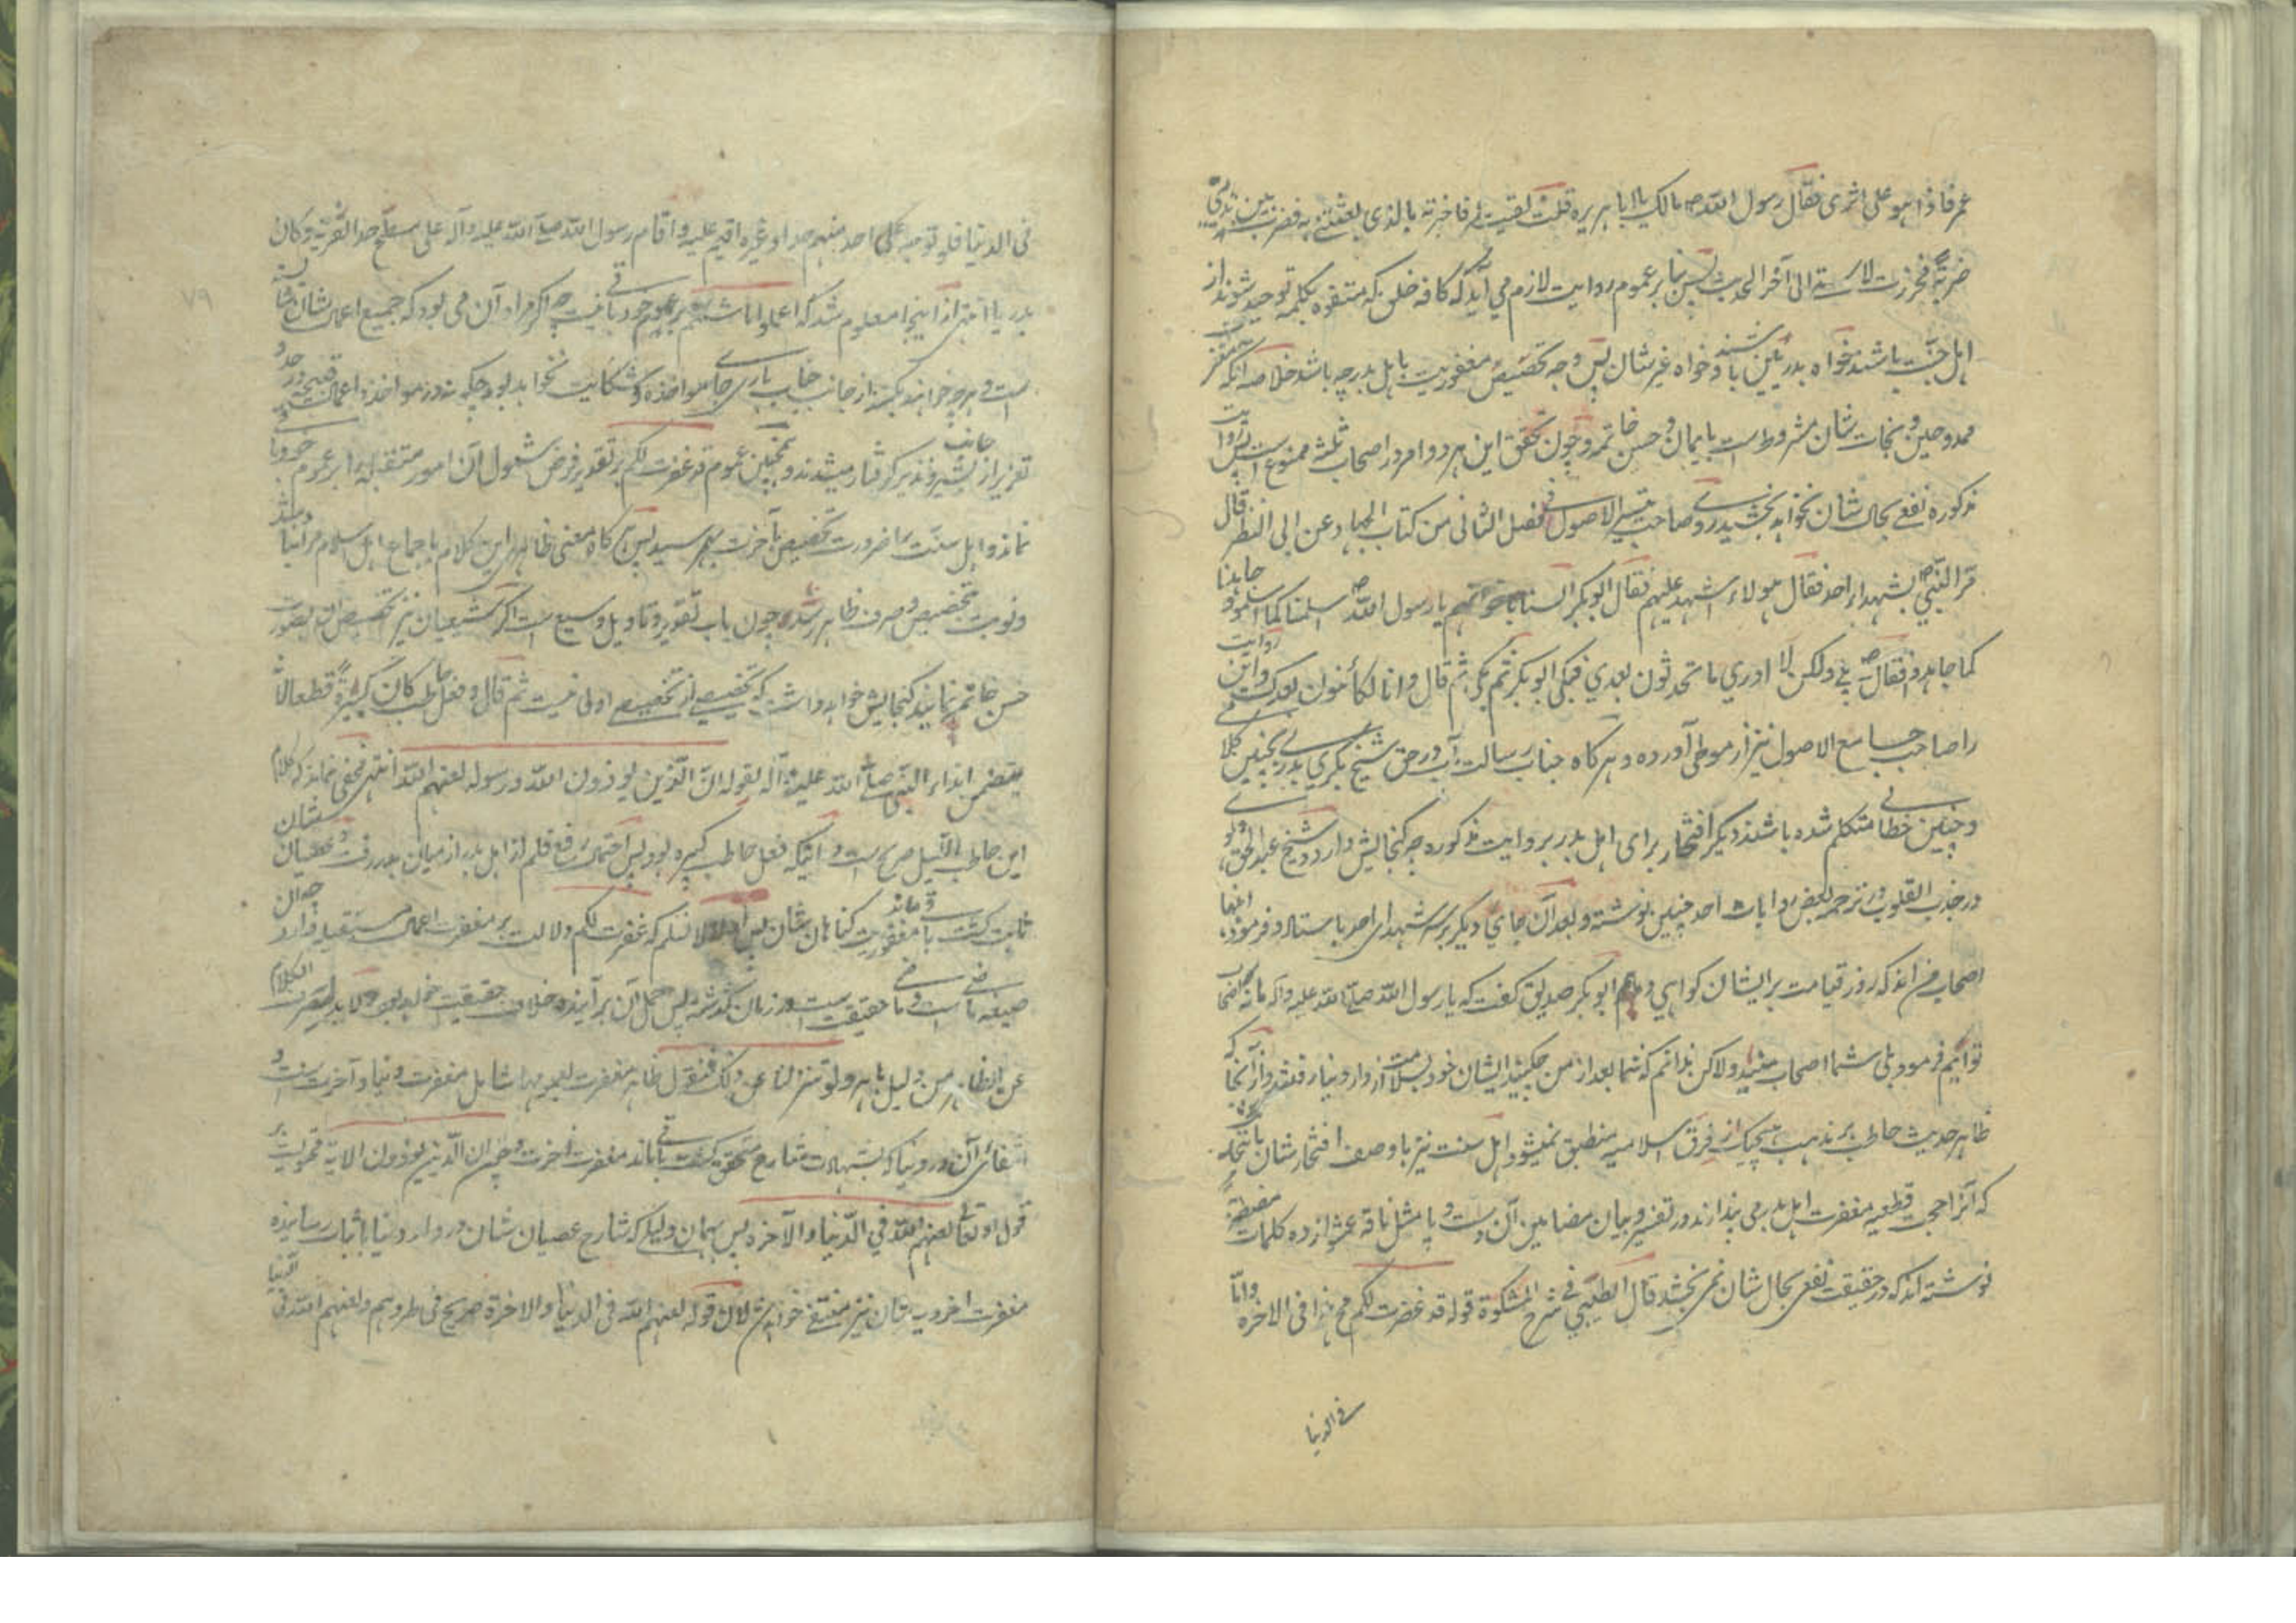 عمر فاذا هو علی اثری فقال رسول الله ص مالک یا ابا هریره قلت لقیت عمر فاخبرته بالذی بعثتنی به فضرب بین ثدیی
ضربة فخررت لاستی الی آخر الحدیث پس بنا بر عموم روایت لازم می آید که کافه خلق که متفوه بکلمه توحید شوند از
اهل جنت باشند خواه بدریین باشند و خواه غیر شان پس وجه تخصیص مغفوریت باهل بدر چه باشد خلاصه آنکه مغفرت
ممدوحین و نجات شان مشروط است بایمان و حسن خاتمه و چون تحقق این هر دو امر در اصحاب ثلثه ممنوع است پس روایت
مذکوره نفعی بحال شان نخواهد بخشید و صاحب تیسیر الاصول فی فصل الثانی من کتاب الجهاد عن ابی النظر قال
مر النبی ص بشهداء احد فقال هولاء اشهد علیهم فقال ابو بکر السنا باخوانهم یا رسول الله ص اسلمنا کما اسلموا و جاهدنا
کما جاهدوا فقال ص بلی ولکن لا ادری ما تحدثون بعدی فبکی ابو بکر ثم بکی ثم قال وانا لکائنون بعدک و این روایت
را صاحب جامع الاصول نیز از موطی آورده و هر گاه جناب رسالت مآب در حق شیخ بکری بدری بچنین کلام
و چنین خطابی متکلم شده باشند دیگر افتخار برای اهل بدر بروایت مذکوره چه گنجایش دارد و شیخ عبد الحق
در جذب القلوب در ترجمه بعض روایات احد چنین نوشته و بعد آن جای دیگر بر سر شهدای احد باستاد و فرمود اینها
اصحاب من اند که روز قیامت بر ایشان گواهی دهم ابو بکر صدیق گفت که یا رسول الله صلی الله علیه و آله ما نه اصحاب
توایم فرمود بلی شما اصحاب منید ولاکن ندانم که شما بعد از من چکنید ایشان خود بسلامت از دار دنیا رفتند و از آنجا که
ظاهر حدیث حاطب بر مذهب هیچیک از فرق اسلامیه منطبق نمیشود اهل سنت نیز با وصف افتخار شان
که آنرا حجت قطعیه مغفرت اهل بدر می پندارند در تفسیر و بیان مضامین آن دست و پا مثل ناقه عشوا زده کلمات مضطربه
نوشته اند که در حقیقت نفعی بحال شان نمی بخشد قال الطیبی فی شرح المشکوة قوله قد غفرت لکم هذا فی الاخره و اما
فی الدنیا
٧٩
فی الدنیا فلو توجه علی احد منهم حد او غیره اقیم علیه و اقام رسول الله صلی الله علیه و آله علی مسطح حد الفریة و کان
بدریا انتهی از اینجا معلوم شد که اعملوا ما شئتم بر عموم خود باقی نیست چه اگر مراد آن می بود که جمیع اعمال شان
است و هر چه خواهند بکنند از جانب جناب باری جای مواخذه و شکایت نخواهد بود چگونه در مواخذه اعمال قبیحه در حد و
تعزیر از جانب بشیر و نذیر گرفتار میشدند و همچنین عموم قد غفرت لکم بر تقدیر فرض شمول آن امور مستقبله را بر عموم خود باقی
نماند و اهل سنت را ضرورت تخصیص بآخرت بهم رسید پس هر گاه معنی ظاهر این کلام باجماع اهل اسلام مراد نباشد
و نوبت تخصیص و صرف ظاهر رسد چون باب تقدیر و تاویل وسیع است اگر شیعیان نیز تخصیص آن بصورت
حسن خاتمه نمایند گنجایش خواهد داشت که تخصیصی از تخصیصی اولی نیست ثم قال و فعل حاطب کان کبیرة قطعا لانه
یتضمن ایذاء النبی صلی الله علیه و آله لقوله ان الذین یوذون الله و رسوله لعنهم الله انتهی مخفی نماند که کلام
این حاطب اللیل صریح است در اینکه فعل حاطب کبیره بود پس احتمال رفع قلم از اهل بدر از میان بدر رفت و عصیان شان
ثابت گشت باقی ماند مغفوریت گناهان شان پس اولا لا نسلم که غفرت لکم دلالت بر مغفرت اعمال مستقبله دارد چه آن
صیغه ماضی است و ماضی حقیقت است در زمان گذشته پس حمل آن بر آینده خلاف حقیقت خواهد بود و لابد لصرف الکلام
عن الظاهر من دلیل باهر و لو تنزلنا عن ذلک فنقول ظاهر مغفرت بعمومها شامل مغفرت دنیا و آخرت است و
انتفای آن در دنیا که بشهادت شارع متحقق گشت باقی ماند مغفرت آخرت و چون ان الذین یوذون الایة محمول بر
قول او تعالی لعنهم الله فی الدنیا و الاخره پس بهمان دلیل که شارح عصیان شان در دار دنیا باثبات رسانیده
مغفرت اخرویه شان نیز منتفی خواهد شد لان قوله لعنهم الله فی الدنیا و الاخرة صریح فی طردهم و لعنهم الله فی الدنیا